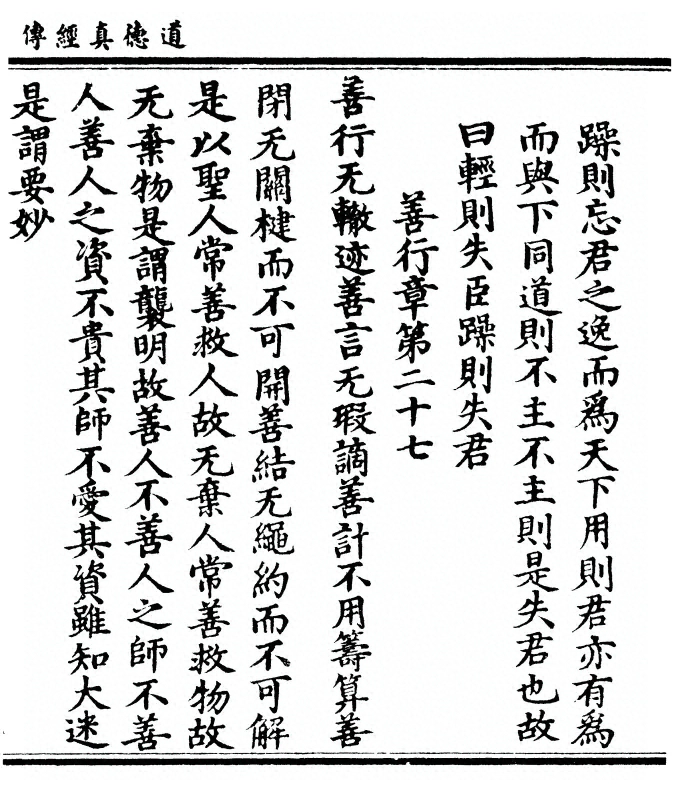 道德真經傳
躁則忘君之逸而爲天下用則君亦有爲
而與下同道則不主不主則是失君也故
曰輕則失臣躁則失君
善行章第二十七
善行无轍迹善言无瑕謫善計不用籌算善
閉无關楗而不可開善結无繩約而不可解
是以聖人常善救人故无棄人常善救物故
无棄物是謂襲明故善人不善人之師不善
人善人之資不貴其師不愛其資雖知大迷
是謂要妙